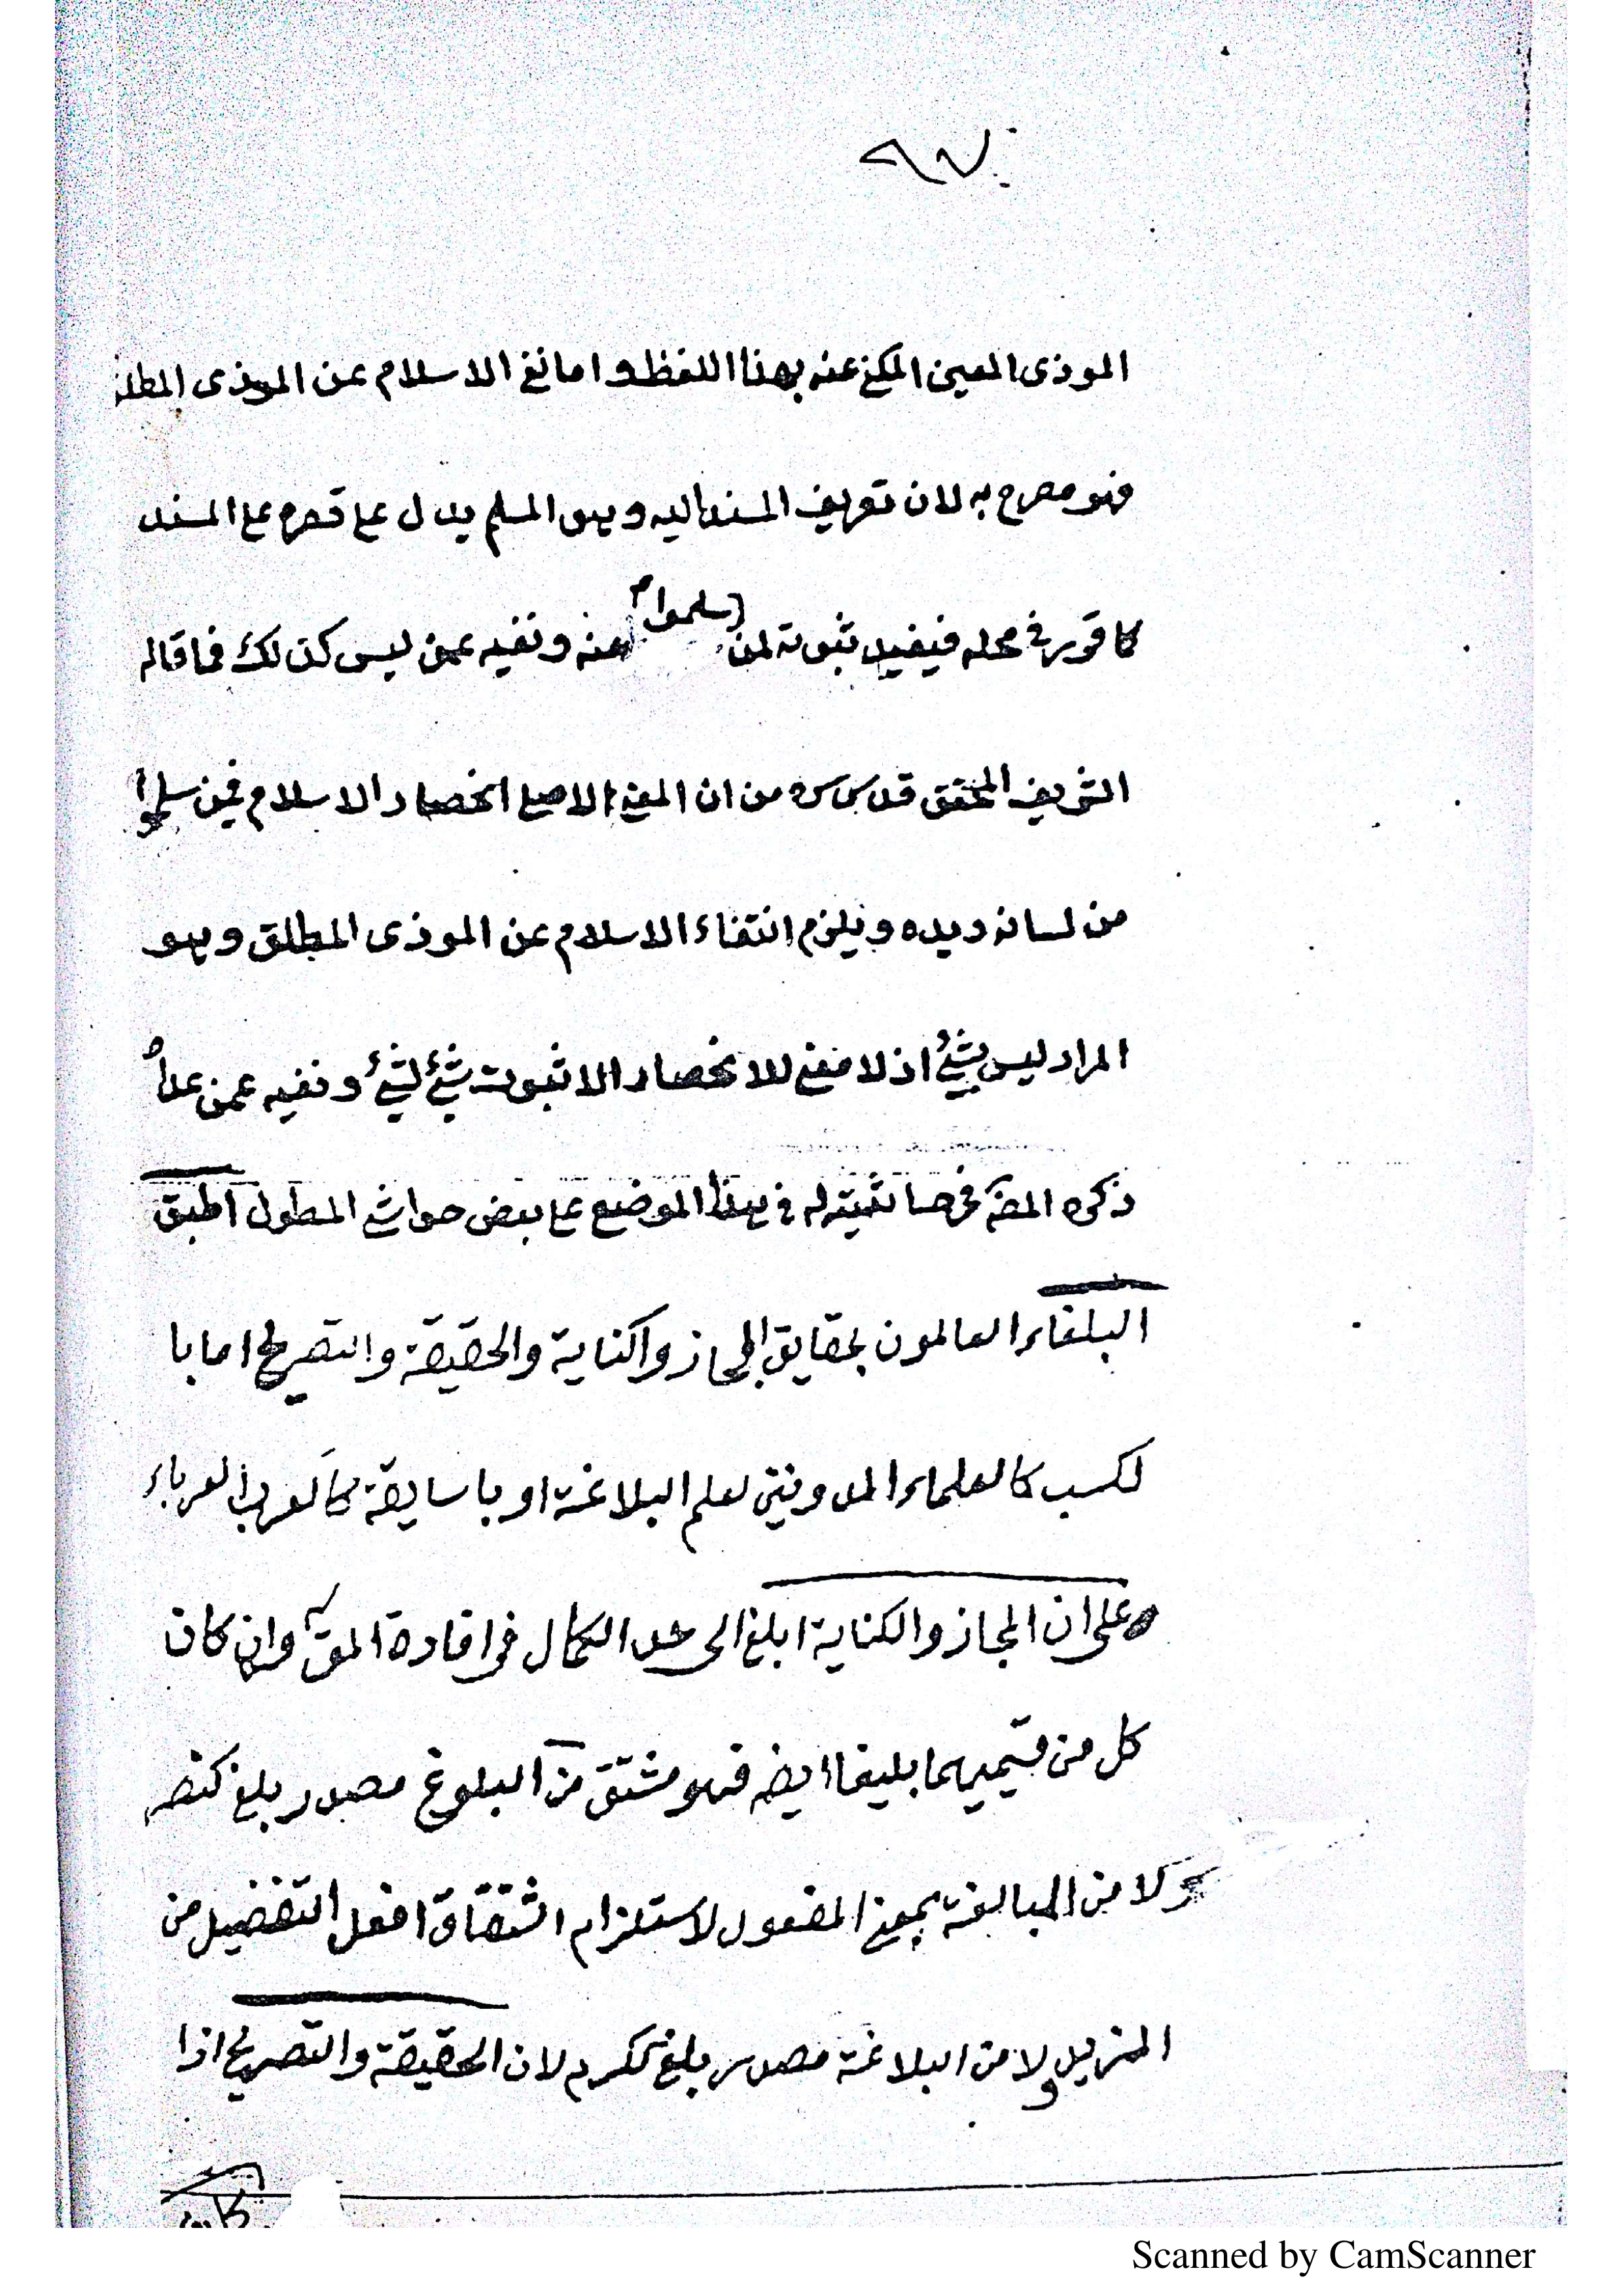 ٩٧
الموذى المعين المكنى عنه بهذا اللفظ و اما نفى الاسلام عن الموذى المطلق
فهو مصرح به لان تعريف المسند اليه و هو المسلم يدل على قصره على المسند
كما قرر فى محله فيفيد ثبوته لمن سلموا عنه و نفيه عمن ليس كذلك فما قاله
الشريف المحقق قدس سره من ان المعنى الاصلى انحصار الاسلام فيمن سلموا
من لسانه و يده و يلزم انتفاء الاسلام عن الموذى المطلق و هو
المراد ليس بشئ اذ لا معنى للانحصار الا ثبوت شئ لشئ و نفيه عمن عداه
ذكره المصـ فى حاشيته له فى هذا الموضع على بعض حواشى المطول اطبق
البلغاء العالمون بحقايق المجاز و الكناية والحقيقة والتصريح اما با
لكسب كالعلماء المدونين لعلم البلاغة او با سليقة كالعرب العرباء
على ان المجاز والكناية ابلغ الى حد الكمال فى افادة المقـ وان كان
كل من قسيميهما بليغا ايضا فهو مشتق من البلوغ مصدر بلغ كنصر
لا من المبالغة بمعنى المفعول لاستلزام اشتقاق افعل التفضيل من
المزيد ولا من البلاغة مصدر بلغ ككرم لان الحقيقة والتصريح اذا
Scanned by CamScanner